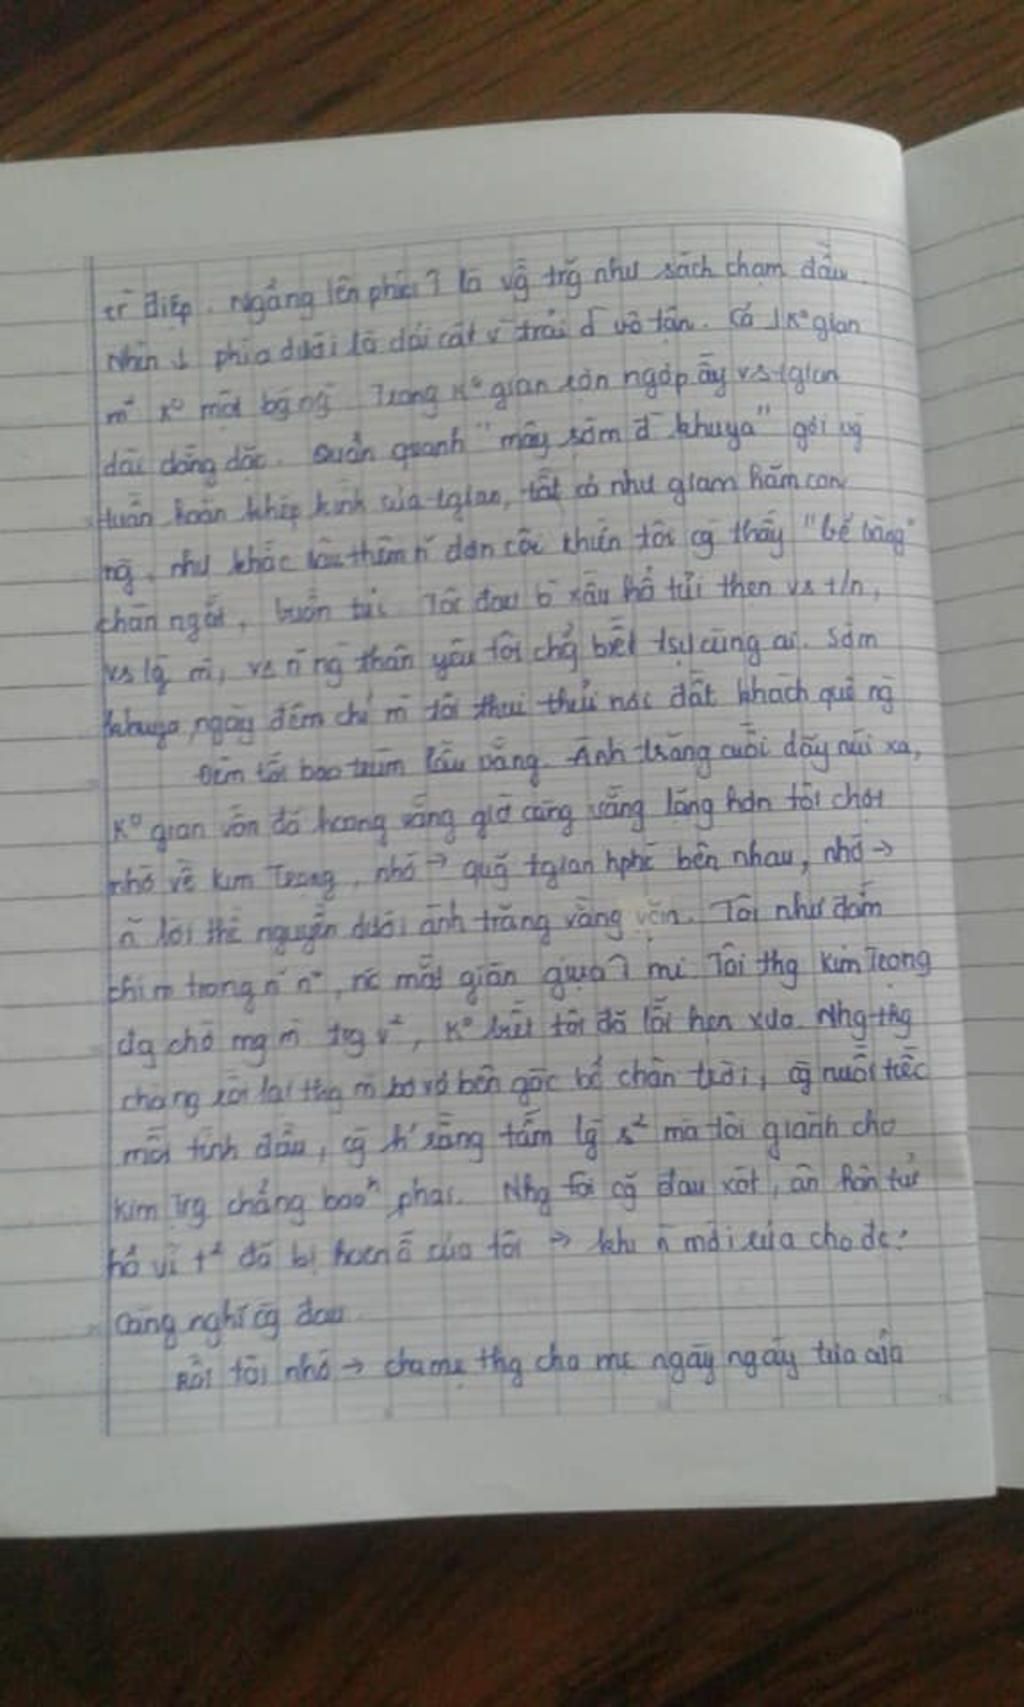 điệp. Ngẩng lên phía là vầ trg như sách chạm đầu.
Nhìn ↓ phía dưới là dải cát v trải d vô tận. Cả 1 kº gian
m kº một bg ng. Trong kº gian rợn ngợp ấy vs tgian
dài dằng dặc. Quẩn quanh "mây sớm đ khuya" gợi vg
tuần hoàn khép kín của tgian, tất cả như giam hãm con
ng, như khắc sâu thêm đơn côi khiến tôi cg thấy "bẽ bàng"
chán ngắt, buồn tủi. Tôi đau xấu hổ tủi thẹn vs t/n,
vs lg m, vs ng thân yêu tôi chg biết tsự cùng ai. Sớm
khuya, ngày đêm chỉ m tôi thui thủi nơi đất khách quê ng
Đêm tối bao trùm lầu vắng. Ánh trăng cuối dãy núi xa,
Kº gian vốn đã hoang vắng giờ càng vắng lặng hơn tôi chợt
nhớ về Kim Trọng, nhớ → qug tgian hphc bên nhau, nhớ →
n lời thề nguyền dưới ánh trăng vằng vặc. Tôi như đắm
chìm trong, nc mắt giàn giụa mi. Tôi thg Kim Trọng
dg chờ mg m tg v², Kº biết tôi đã lỗi hẹn xưa. Nhg thg
chàng rồi lại thg m bơ vơ bên góc bể chân trời, cg nuối tiếc
mối tình đầu, cg k sẵng tấm lg s² mà tôi giành cho
Kim Trg chẳng bao phai. Nhg tôi cg đau xót, ân hận tủi
hổ vì t² đã bị hoen ố của tôi → khi n mới rửa cho đc?
Càng nghĩ cg đau.
Rồi tôi nhớ → cha mẹ thg cha mẹ ngày ngày tựa cửa